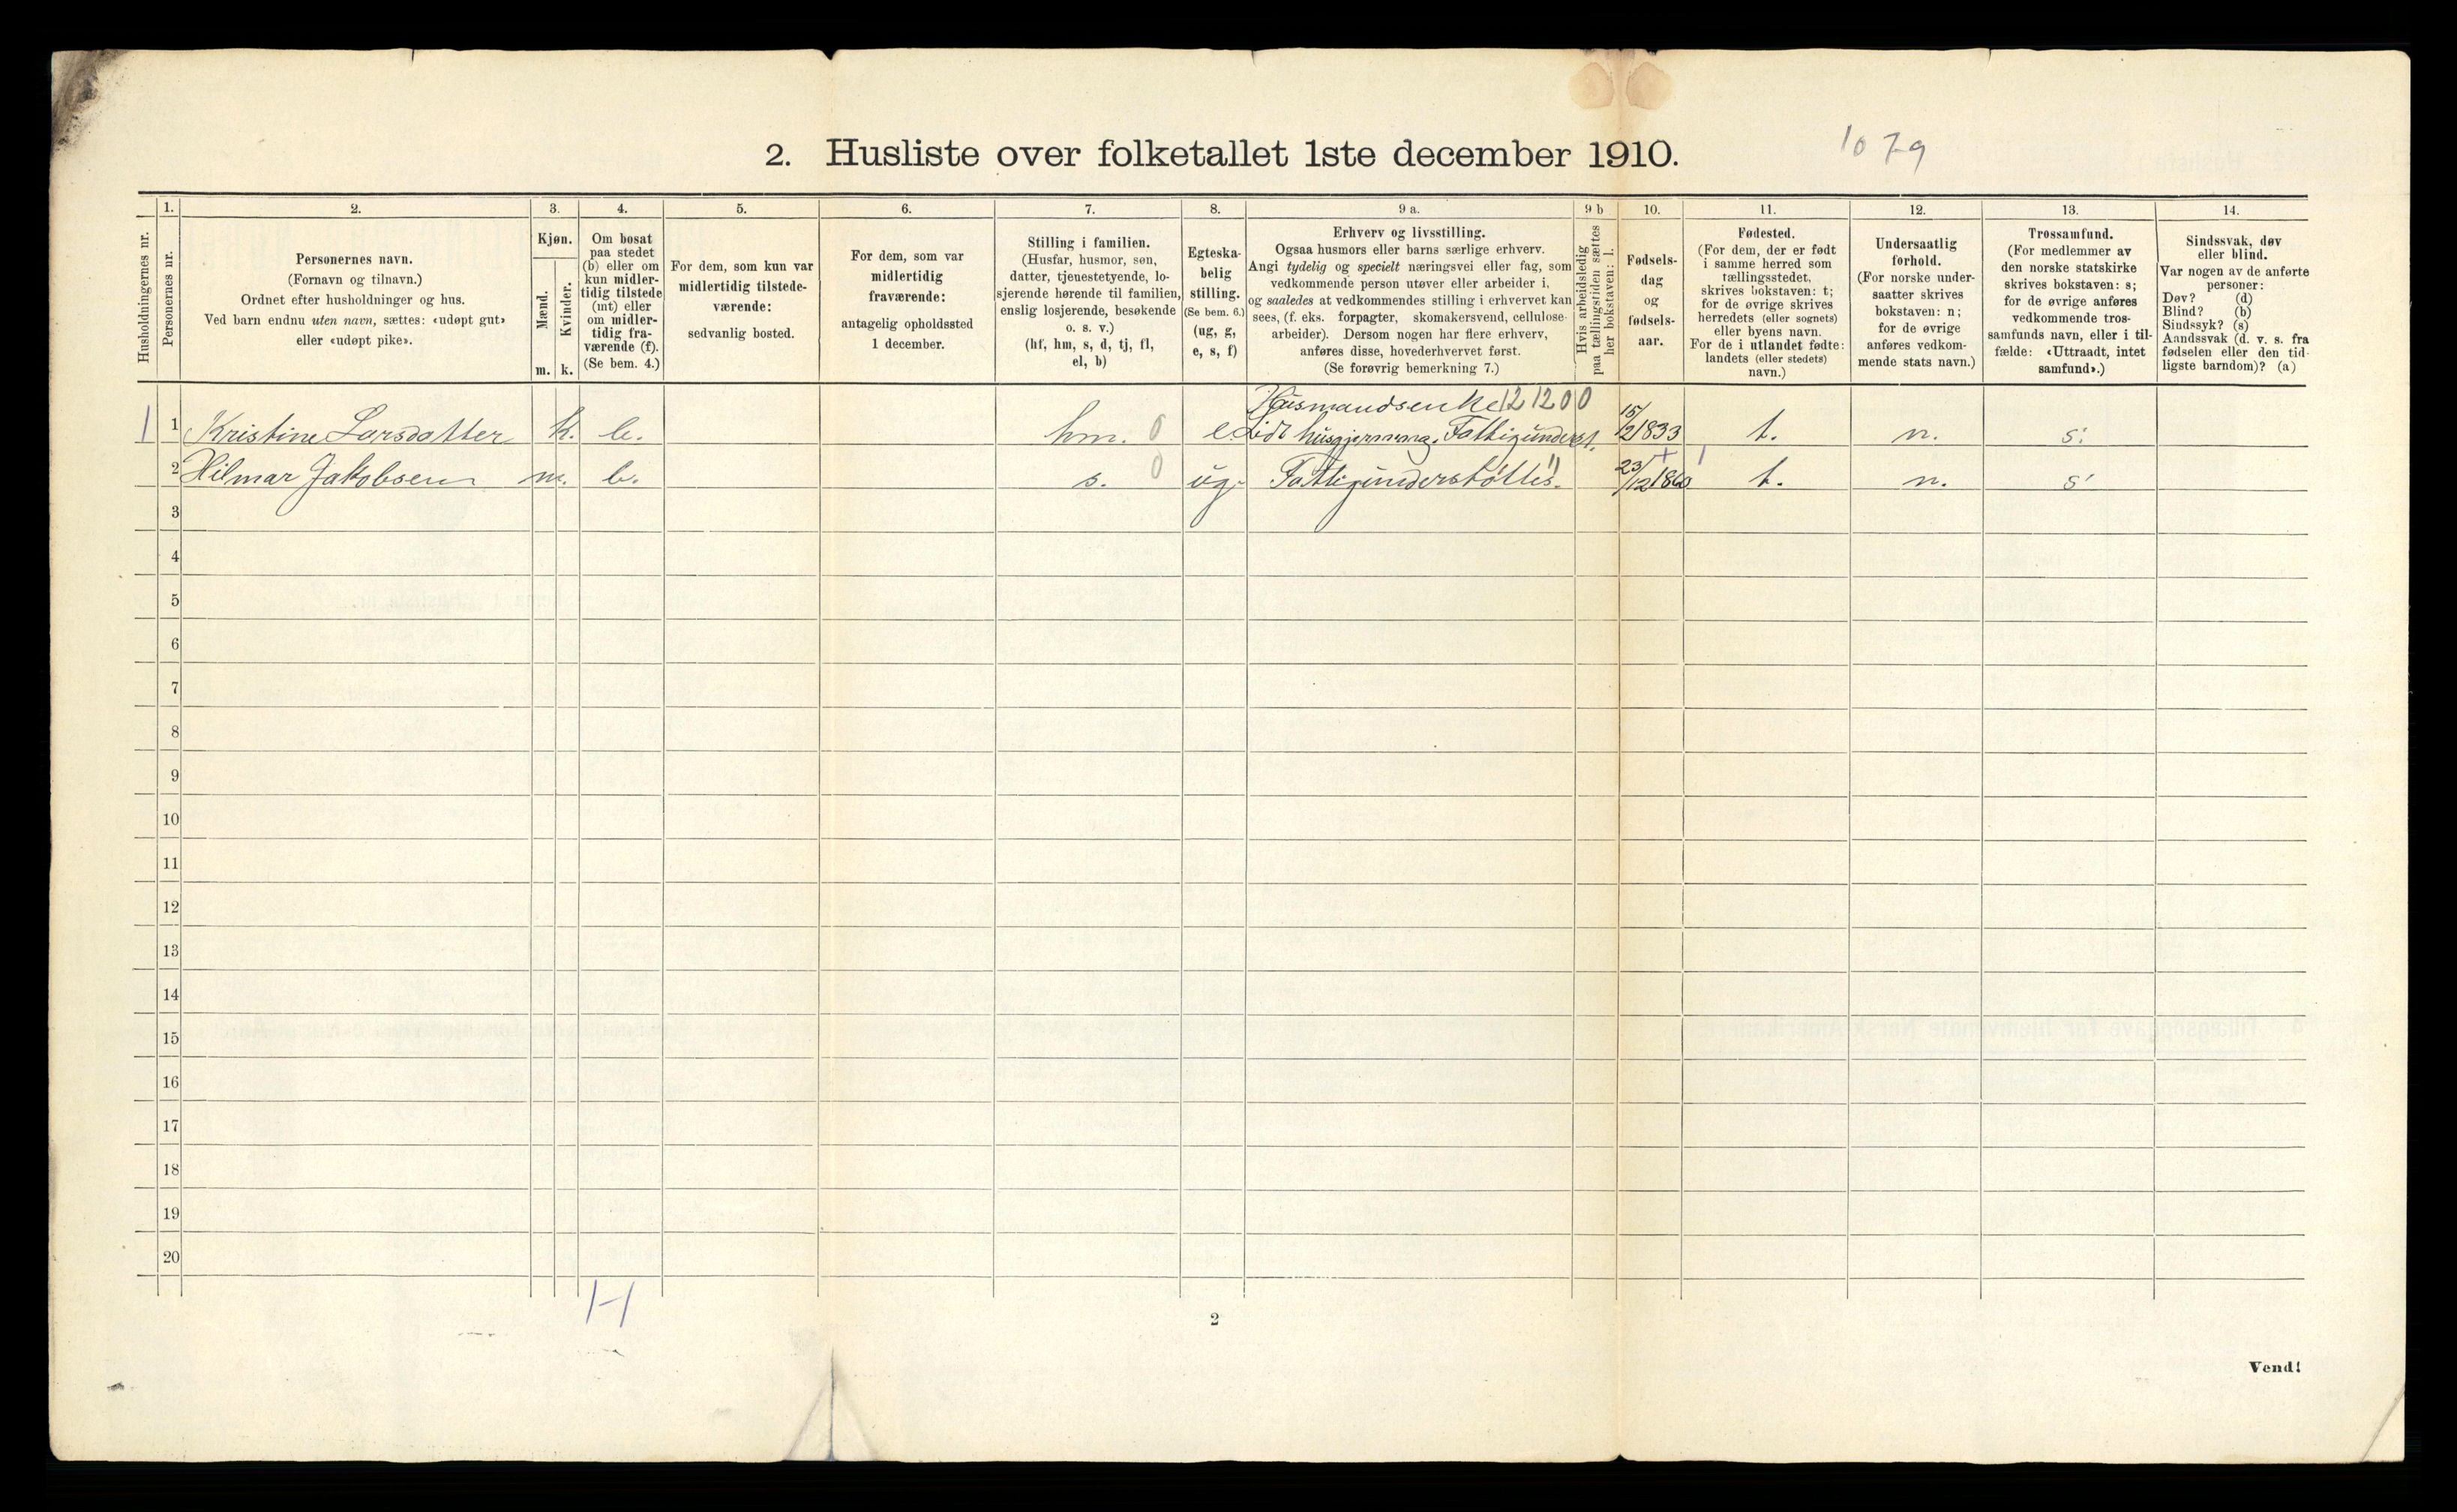 2. Husliste over folketallet 1ste december 1910.
1079
Husholdningernes nr.
1.
Personernes nr.
2.
Personernes navn.
(Fornavn og tilnavn.)
Ordnet efter husholdninger og hus.
Ved barn endnu uten navn, sættes: «udøpt gut»
eller «udøpt pike».
3.
Kjøn.
Mænd.
Kvinder.
m. k.
4.
Om bosat
paa stedet
(b) eller om
kun midler-
tidig tilstede
(mt) eller
om midler-
tidig fra-
værende (f).
(Se bem. 4.)
5.
For dem, som kun var
midlertidig tilstede-
værende:
sedvanlig bosted.
6.
For dem, som var
midlertidig
fraværende:
antagelig opholdssted
1 december.
7.
Stilling i familien.
(Husfar, husmor, søn,
datter, tjenestetyende, lo-
sjerende hørende til familien,
enslig losjerende, besøkende
o. s. v.)
(hf, hm, s, d, tj, fl,
el, b)
8.
Egteska-
belig
stilling.
(Se bem. 6.)
(ug, g,
e, s, f)
9 a.
Erhverv og livsstilling.
Ogsaa husmors eller barns særlige erhverv.
Angi tydelig og specielt næringsvei eller fag, som
vedkommende person utøver eller arbeider i,
og saaledes at vedkommendes stilling i erhvervet kan
sees, (f. eks. forpagter, skomakersvend, cellulose-
arbeider). Dersom nogen har flere erhverv,
anføres disse, hovederhvervet først.
(Se forøvrig bemerkning 7.)
9 b
Hvis arbeidsledig
paa tællingstiden sættes
her bokstaven: l.
10.
Fødsels-
dag
og
fødsels-
aar.
11.
Fødested.
(For dem, der er født
i samme herred som
tællingsstedet,
skrives bokstaven: t;
for de øvrige skrives
herredets (eller sognets)
eller byens navn.
For de i utlandet fødte:
landets (eller stedets)
navn.)
12.
Undersaatlig
forhold.
(For norske under-
saatter skrives
bokstaven: n;
for de øvrige
anføres vedkom-
mende stats navn.)
13.
Trossamfund.
(For medlemmer av
den norske statskirke
skrives bokstaven: s;
for de øvrige anføres
vedkommende tros-
samfunds navn, eller i til-
fælde: «Uttraadt, intet
samfund».)
14.
Sindssvak, døv
eller blind.
Var nogen av de anførte
personer:
Døv? (d)
Blind? (b)
Sindssyk? (s)
Aandssvak (d. v. s. fra
fødselen eller den tid-
ligste barndom)? (a)
Husmandsenke 121200
1 1 Kristine Larsdatter k. b. hm. 0 e. Lidt husgjerning. Fattigunderst. 15/2 1833 t. n. s.
2 Hilmar Jakobsen m. b. s. 0 ug. Fattigunderstøttes. 23/12 1860 t. n. s.
3
4
5
6
7
8
9
10
11
12
13
14
15
16
17
18
19
20
H
2
Vend!